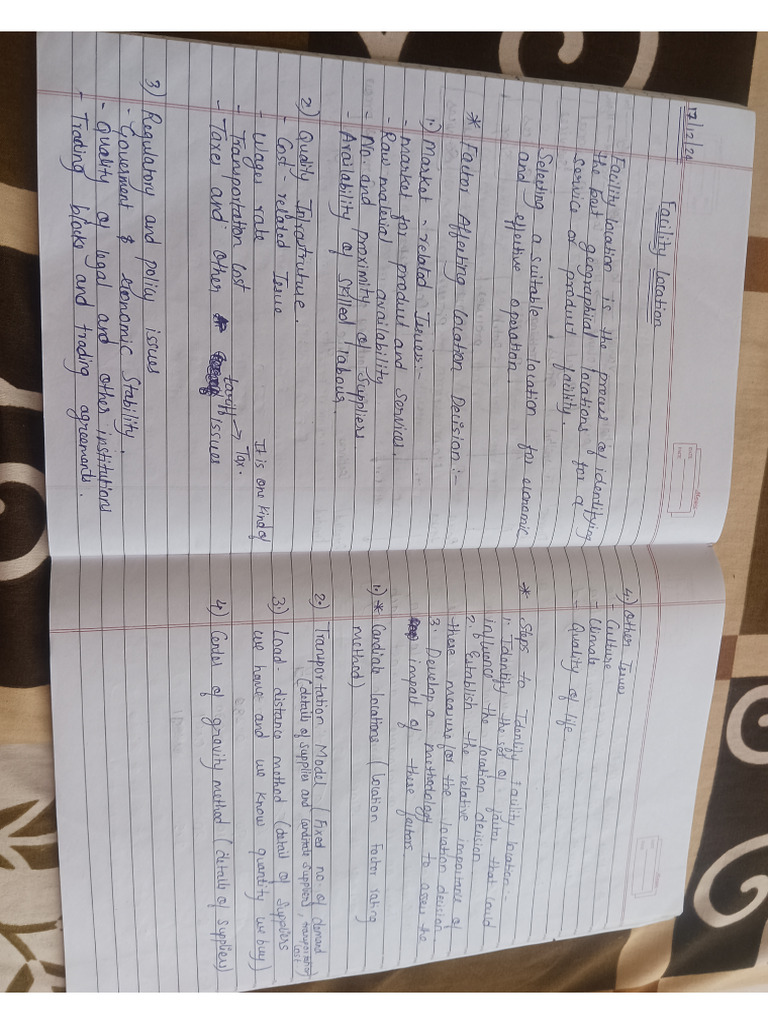 17/12/20
Facility Location
Facility location is the process of identifying
the best geographical locations for a
service or product facility.
Selecting a suitable location for economic
and effective operation.
* Factor Affecting Location Decision :-
1.) Market - related Issues:-
- market for product and services.
- Raw material availability
- No. and proximity of Suppliers
- Availability of skilled labour.
2) Quality Infrastruture.
- Cost - related Issue
- Wages rate
- Transportation Cost
- Taxes and other tariffs issues
It is one kind of
→ Tax.
3) Regulatory and policy issues
- Goverment & economic Stability.
- Quality of legal and other institutions
- Trading blocks and trading agreements.
4.) Other Issues
- Culture
- Climate
- Quality of life
* Steps to Identify facility location -
1. Identify the set of factor that could
influence the location decision
2. Establish the relative importance of
these measure for the location decision
3. Develop a methodology to asses the
impact of these factors.
1.) * Candiate locations (Location Factor rating
method)
2.) Transportation Model (Fixed no. of demand
(details of supplies and candiate suppliers, transportation
cost)
3.) Load - distance method (detail of suppliers
we have and we know quantity we buy)
4) Center of gravity method (details of suppliers)